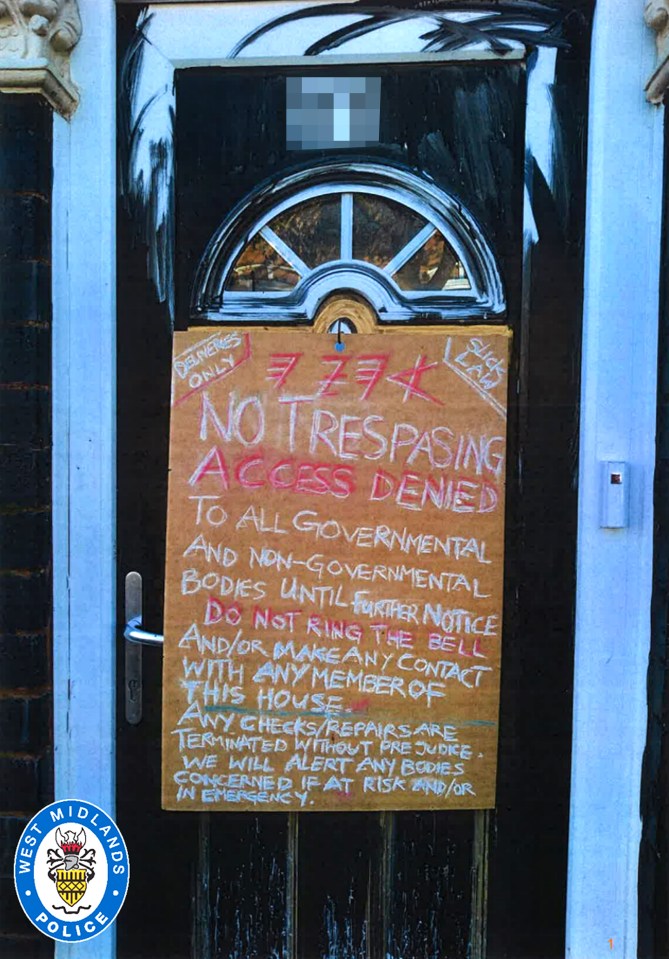 DELIVERIES
ONLY
LAW
NO TRESPASING
ACCESS DENIED
TO ALL GOVERNMENTAL
AND NON-GOVERNMENTAL
BODIES UNTIL FURTHER NOTICE
DO NOT RING THE BELL
AND/OR MAKE ANY CONTACT
WITH ANY MEMBER OF
THIS HOUSE
ANY CHECKS/REPAIRS ARE
TERMINATED WITHOUT PREJUDICE.
WE WILL ALERT ANY BODIES
CONCERNED IF AT RISK AND/OR
IN EMERGENCY.
WEST MIDLANDS
POLICE
1